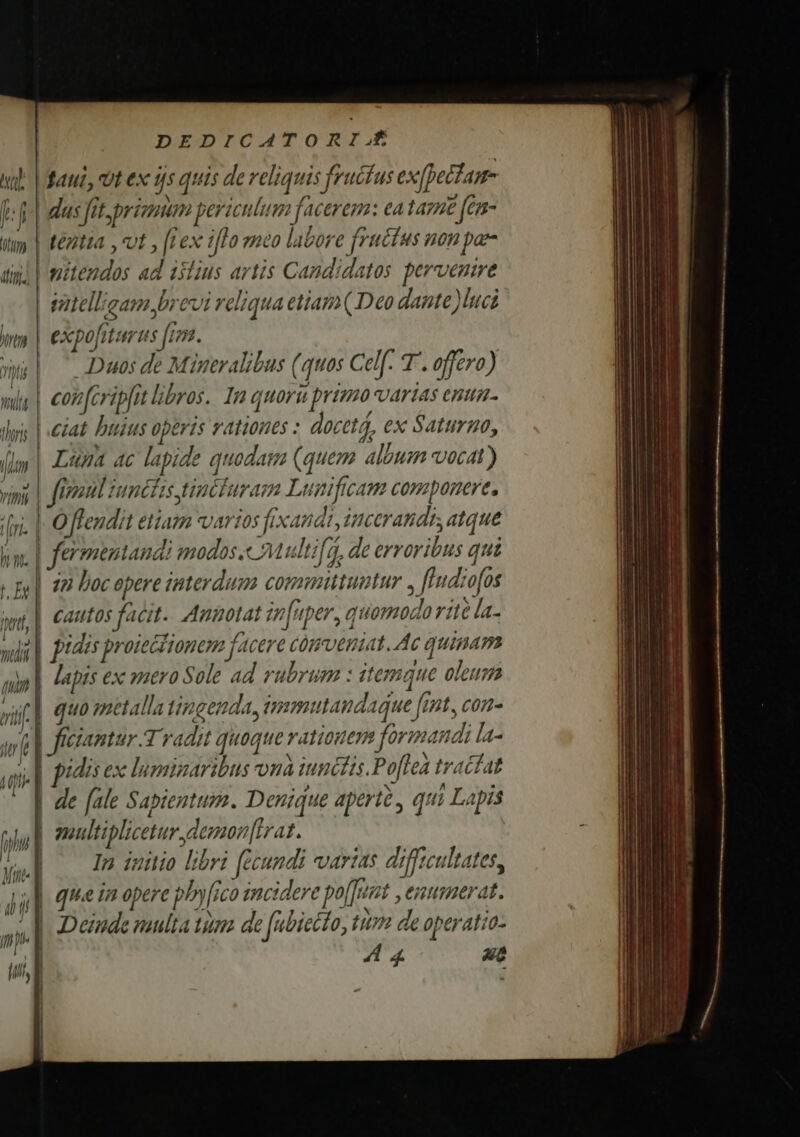 DEDICATORIÆ
taui, vt ex ijs quis de reliquis fructus exſpectan-
dus ſit, primùm periculum facerem: ea tamē ſen-
tentia, vt, ſi ex iſto meo labore fructus non pœ-
nitendos ad iſtius artis Candidatos pervenire
intelligam, brevi reliqua etiam (Deo dante) luci
expoſiturus ſim.
Duos de Mineralibus (quos Celſ. T. offero)
conſcripſit libros. In quorū primo varias enun-
ciat huius operis rationes: docetq́, ex Saturno,
Luna ac lapide quodam (quem album vocat)
ſimul iunctis, tincturam Lunificam componere.
Oſtendit etiam varios fixandi, incerandi, atque
fermentandi modos. Multiſq́, de erroribus qui
in hoc opere interdum committuntur, ſtudioſos
cautos facit. Annotat inſuper, quomodo ritè la-
pidis proiectionem facere conveniat. Ac quinam
lapis ex mero Sole ad rubrum: itemque oleum
quo metalla tingenda, immutandaque ſint, con-
ficiantur. Tradit quoque rationem formandi la-
pidis ex luminaribus vnà iunctis. Poſteà tractat
de ſale Sapientum. Denique apertè, qui Lapis
multiplicetur, demonſtrat.
In initio libri ſecundi varias difficultates,
quæ in opere phyſico incidere poſſunt, enumerat.
Deinde multa tùm de ſubiecto, tùm de operatio-
A 4 ne